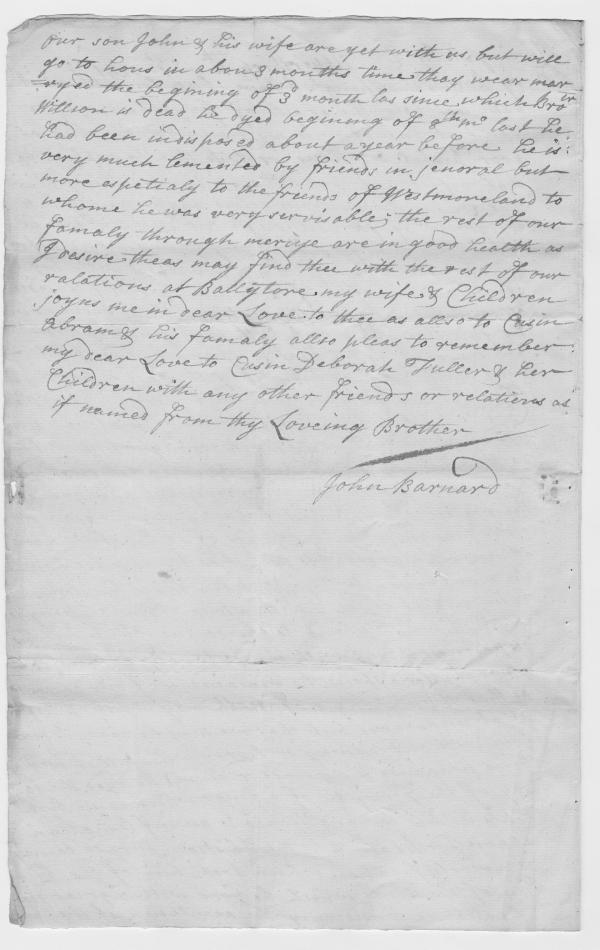 our son John & his wife are yet with us but will
go to hous in abou 3 months time thay wear mar
ryed the begining of 3d month las since which Broᵗʰʳ
William is dead he dyed begining of 8th mo last he
had been indisposed about a year before he is
very much lemented by friends in jenoral but
more espetialy to the friends of Westmoreland to
whome he was very servisable; the rest of our
famaly through mercye are in good health as
I desire theas may find thee with the rest of our
ralations at Ballytore my wife & Children
joyns me in dear Love to thee as allso to Cusin
Abram & his famaly allso pleas to remember
my dear Love to Cusin Deborah Fuller & her
Children with any other friends or relations as
if named from thy Loveing Brother
John Barnard